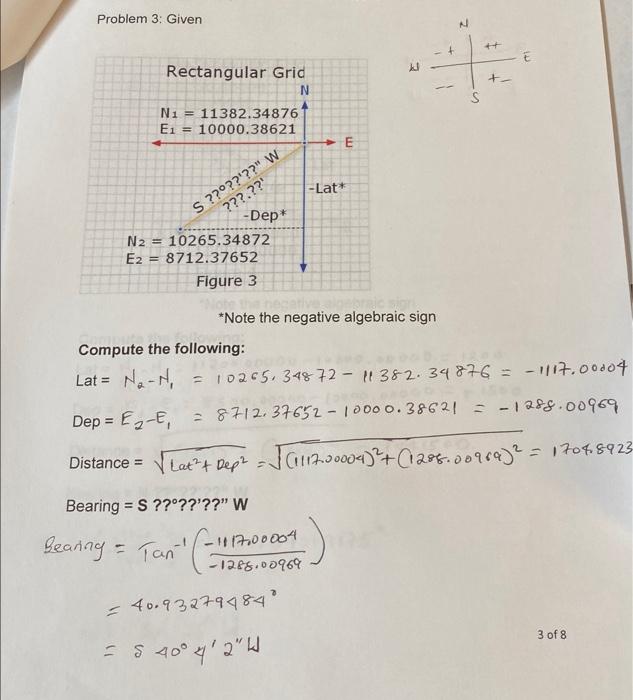 Problem 3: Given
N
- + ++
W E
-- + -
S
Rectangular Grid
N
N1 = 11382.34876
E1 = 10000.38621
E
S ??°??'??" W
???.??'
-Lat*
-Dep*
N2 = 10265.34872
E2 = 8712.37652
Figure 3
*Note the negative algebraic sign
Compute the following:
Lat = N2-N1 = 10265.34872 - 11382.34876 = -1117.00004
Dep = E2-E1 = 8712.37652 - 10000.38621 = -1288.00969
Distance = √Lat²+Dep² = √(1117.00004)²+(1288.00969)² = 1704.8923
Bearing = S ??°??'??" W
Bearing = Tan⁻¹(-1117.00004/-1288.00969)
= 40.93279484°
= S 40° 4' 2" W
3 of 8